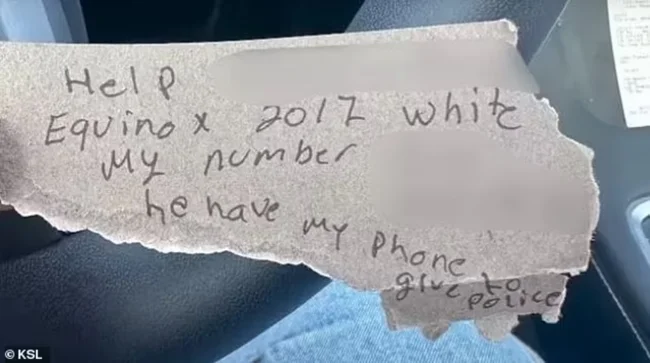 Help
Equinox 2017 white
My number
he have my phone
give to
police
© KSL